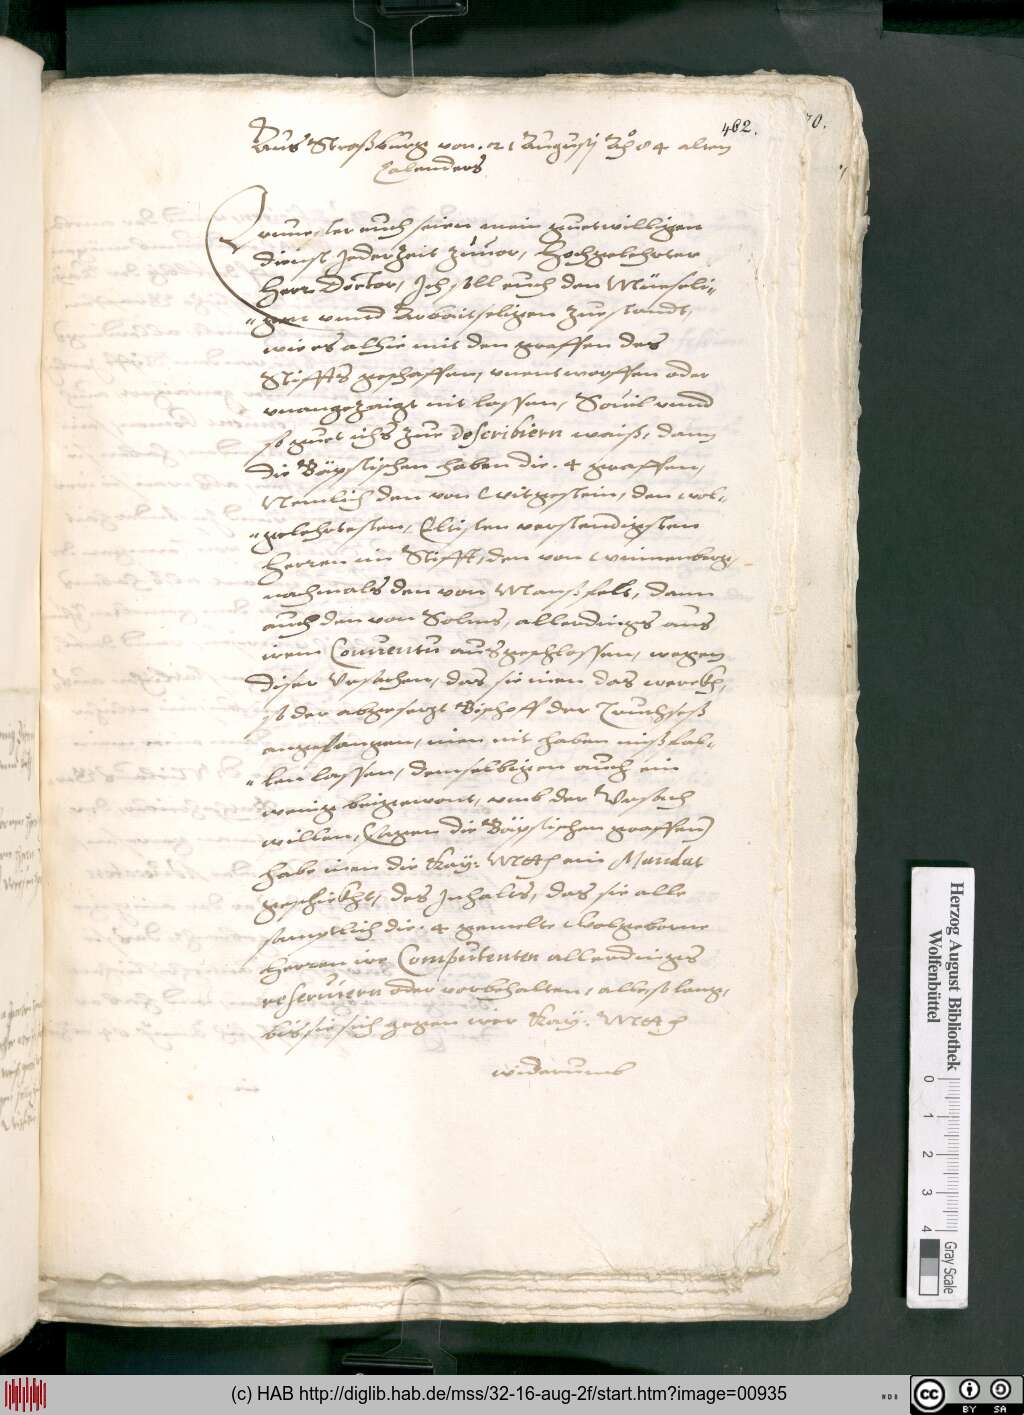 462.
70.
Aus Straßburg von .21 Augusti Aō 84 alten
Calenders
Ernuester euch seien mein guetwilligen
dienst Jederzeit zuuor, Hochgelehrter
Herr Doctor, Ich will euch den Müeseli-
-gen vnnd Arbaitseligen zuestandt,
wie es alhie mit den graffen des
Stiffts geschaffen, vnentworffen oder
vnangezaigt nit lassen, Souil vnnd
so guet ichs zue describiern waiß, dann
die Bäpstischen haben die .4 graffen,
Nemlich den von Witgestein, den wol-
-gelehrtesten, Eltisten verstendigsten
Herren im Stifft, den von Winnenberg,
nachmals den von Manßfelt, dann
auch den von Solms, allerdings aus
irem Conuentu ausgeschlossen, wegen
diser Vrsachen, das sie inen das werckh,
so der abgesetzt Bischoff der Truchseß
angefangen, inen nit haben mißfal-
-len lassen, demselbigen auch ein
wenig beigewont, vmb der Vrsach
willen, (sagen die Bäpstischen graffen)
habe inen die Kay: Mtt ein Mandat
geschickht, des Inhalts, das sie alle
samptlich die .4 gemelte Wolgeborne
Herren ire Computenten allerdings
reseruiern oder vorbehalten, alleso lang,
bis sie sich gegen irer Kay: Mtt
widerumb
Herzog August Bibliothek
Wolfenbüttel
0
1
2
3
4
Gray Scale
(c) HAB http://diglib.hab.de/mss/32-16-aug-2f/start.htm?image=00935
WDB
cc
BY
SA